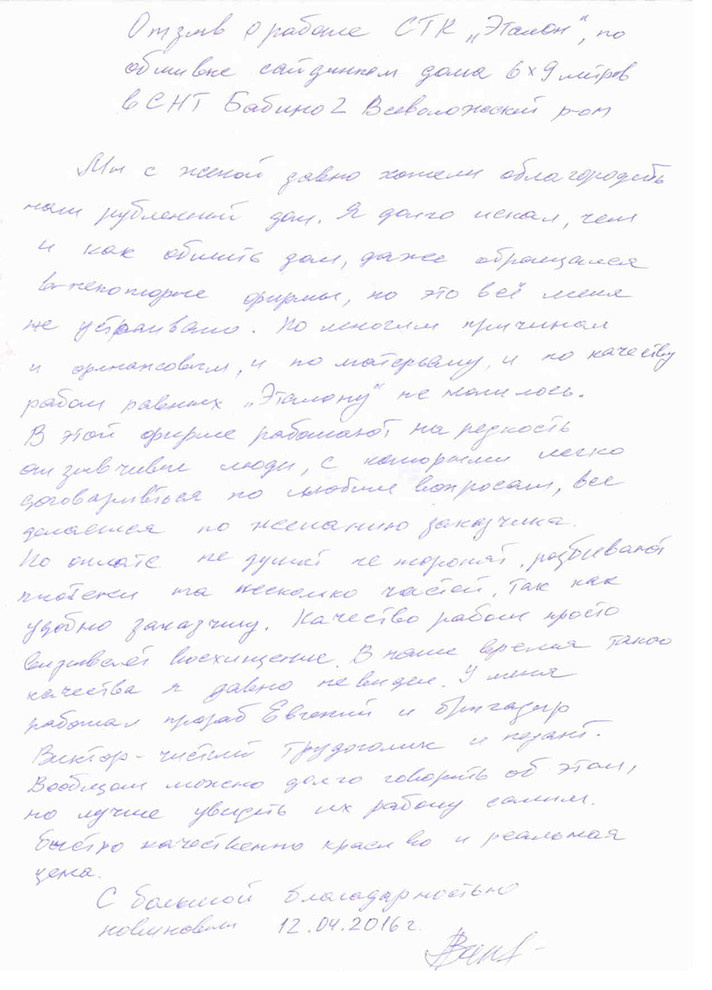 Отзыв о работе СТК „Эталон“, по
обшивке сайдингом дома 6×9 метров
в СНТ Бабино 2 Всеволожский р-он
Мы с женой давно хотели облагородить
наш рубленный дом. Я долго искал, чем
и как обшить дом, даже обращался
в некоторые фирмы, но это всё меня
не устраивало. По многим причинам
и финансовым, и по матерьялу, и по качеству
работ равных „Эталону“ не нашлось.
В этой фирме работают на редкость
отзывчивые люди, с которыми легко
договариваться по любым вопросам, все
делается по желанию заказчика.
По оплате не душат не торопят, разбивают
платежи на несколько частей, так как
удобно заказчику. Качество работ просто
вызывает восхищение. В наше время такого
качества я давно не видел. У меня
работал прораб Евгений и бригадир
Виктор - чистый трудоголик и педант.
Вообщем можно долго говорить об этом,
но лучше увидеть их работу самим.
Быстро качественно красиво и реальная
цена.
С большой благодарностью
12.04.2016 г.